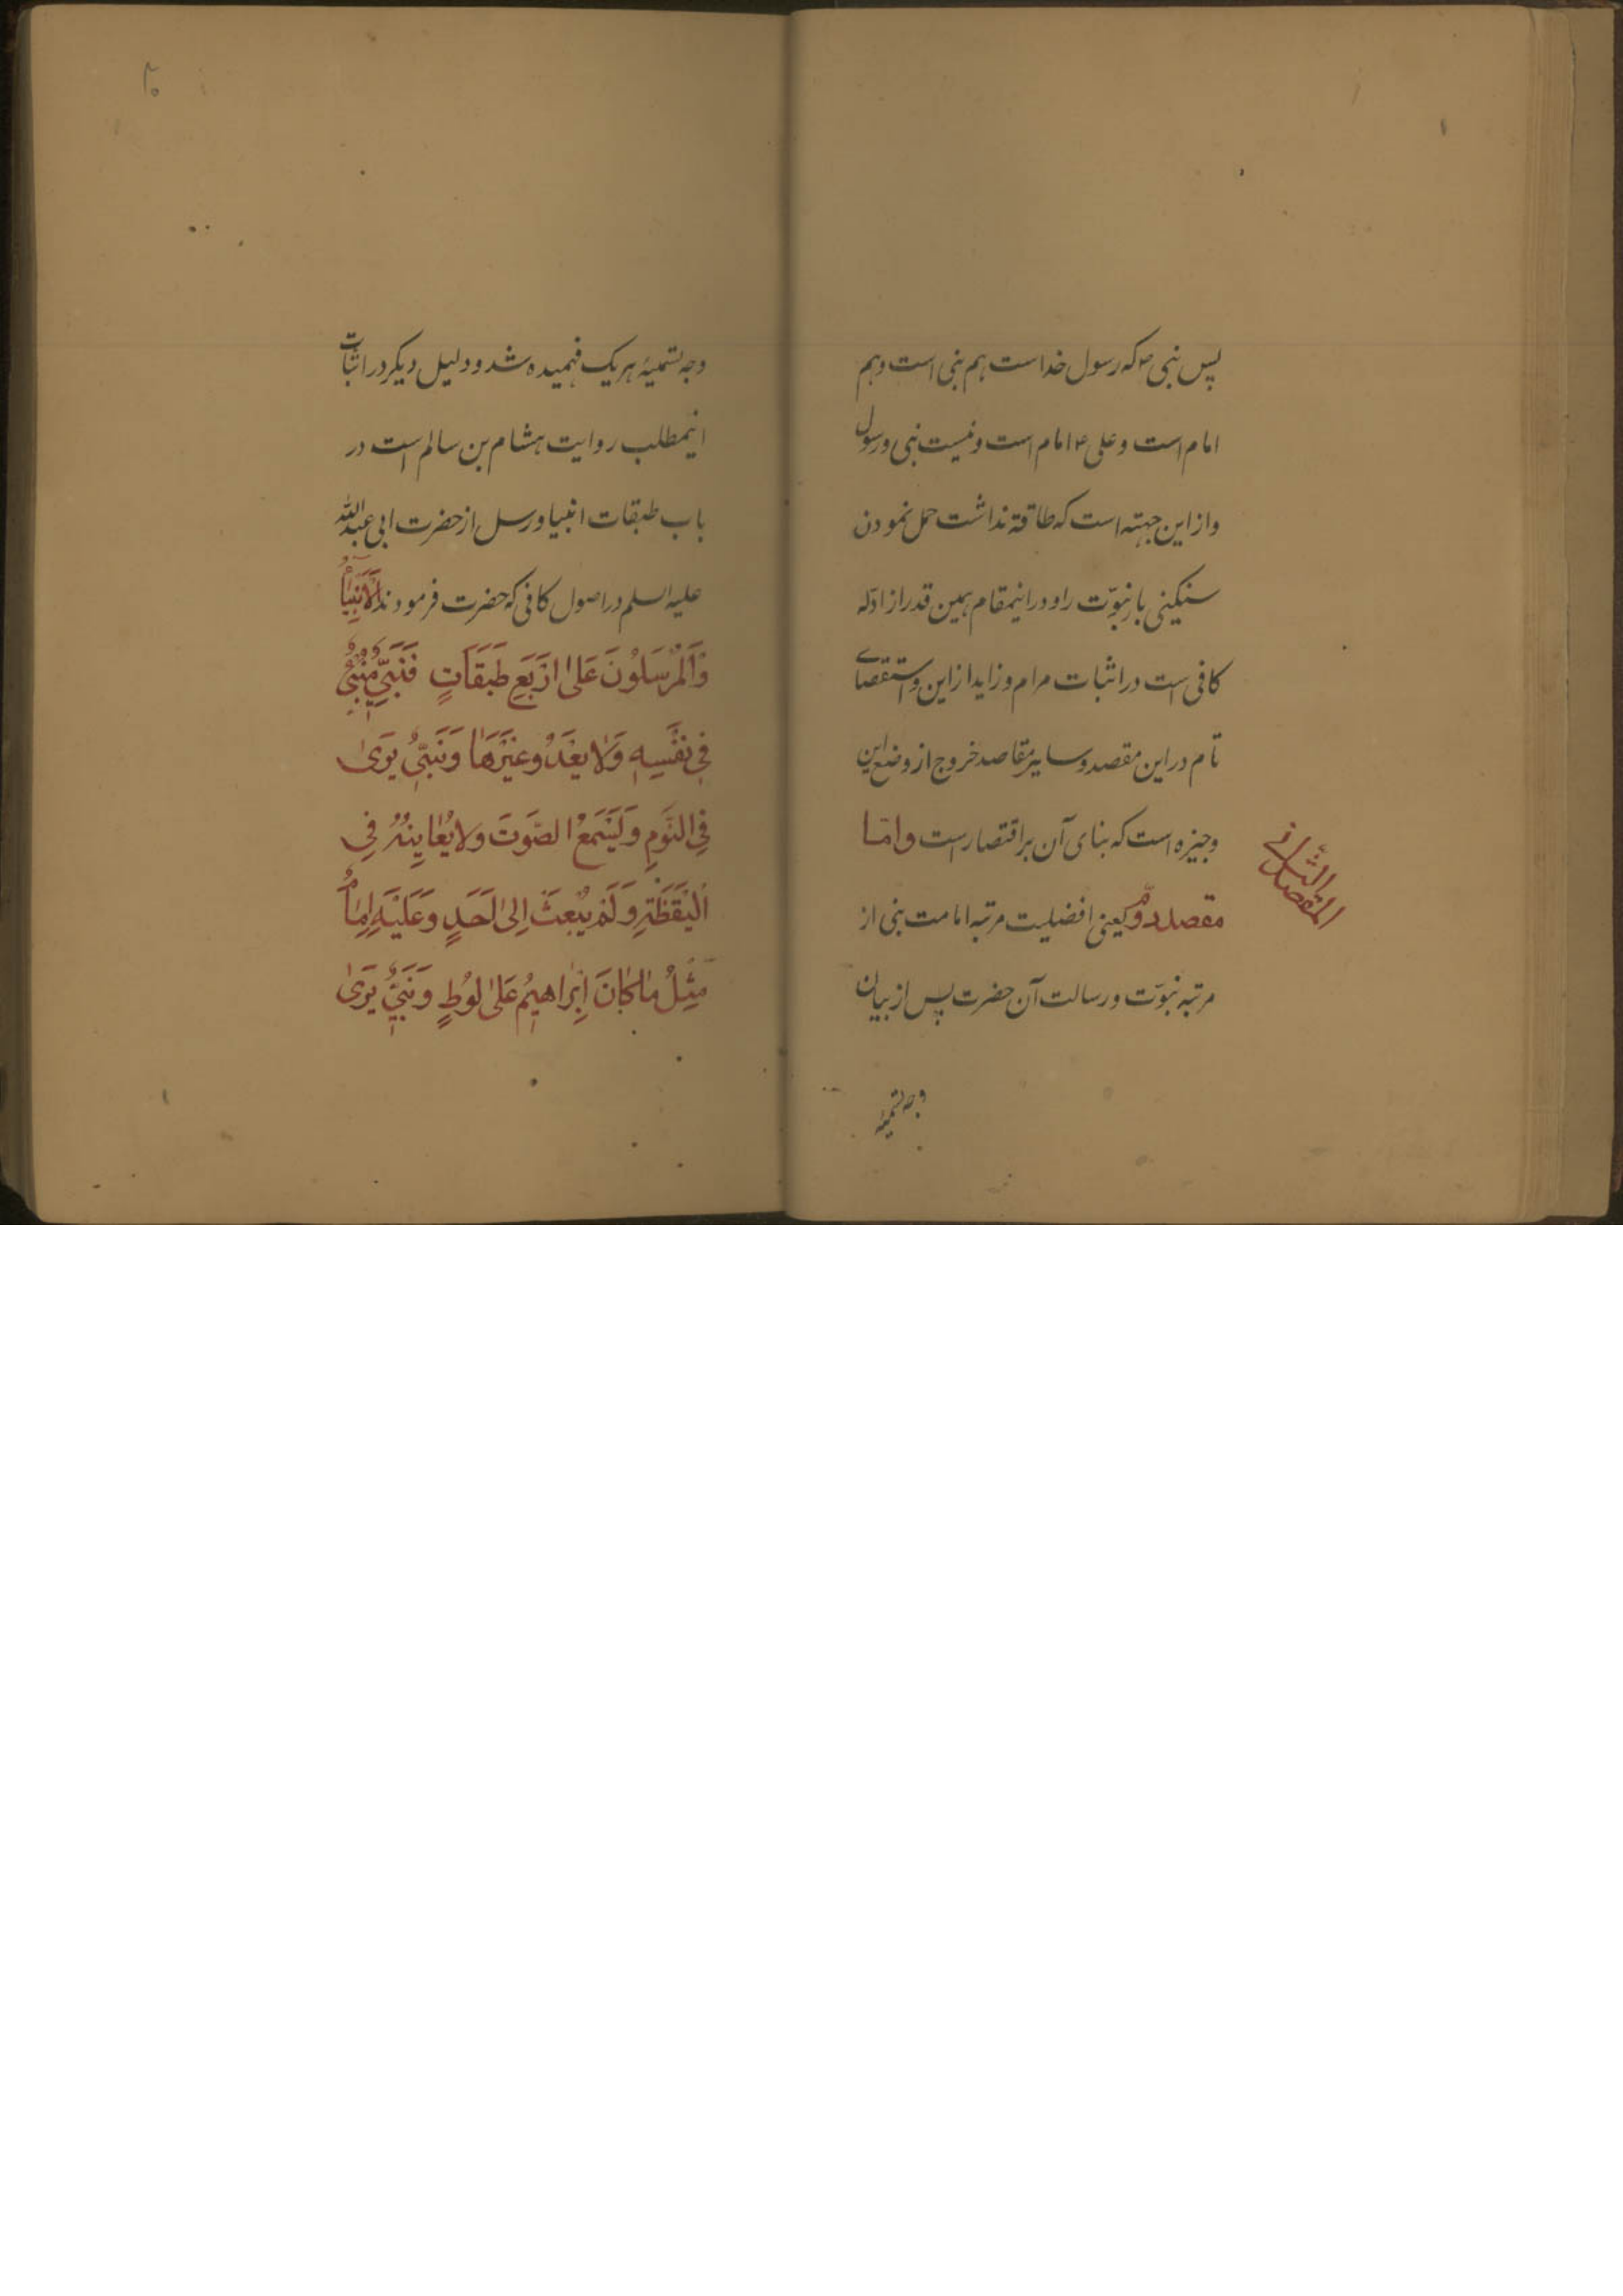 پس نبی ص که رسول خداست هم نبی است و هم
امام است و علی ع امام است و نیست نبی و رسول
و از این جهته است که طاقة نداشت حمل نمودن
سنکینی بار نبوّت را و در اینمقام همین قدر از ادلّه
کافی است در اثبات مرام و زاید از این و استقصای
تام در این مقصد و سایر مقاصد خروج از وضع این
وجیزه است که بنای آن بر اقتصار است و امّا
مقصد دوّم یعنی افضلیت مرتبه امامت نبی از
مرتبه نبوّت و رسالت آن حضرت پس از بیان
المقصد الثانی
وجه تسمیهٔ
۲۰
وجه تسمیهٔ هر یک فهمیده شد و دلیل دیکر در اثبات
اینمطلب روایت هشام بن سالم است در
باب طبقات انبیا و رسل از حضرت ابی عبدالله
علیه السلم در اصول کافی که حضرت فرمودند اَلْاَنْبِیٰاءُ
وَالْمُرْسَلُونَ عَلیٰ اَرْبَعِ طَبَقَاتٍ فَنَبِیٌّ مُنَبَّیءٌ
فِی نَفْسِهِ وَلَا یَعْدُو غَیْرَهَا وَنَبِیٌّ یَریٰ
فِی النَّوْمِ وَیَسْمَعُ الصَّوْتَ وَلا یُعٰایِنُهُ فِی
الْیَقَظَةِ وَلَمْ یُبْعَثْ اِلیٰ اَحَدٍ وَعَلَیْهِ اِمٰامٌ
مِثْلُ مٰا کٰانَ اِبْرٰاهیمُ عَلیٰ لُوطٍ وَنَبِیٌّ یَریٰ